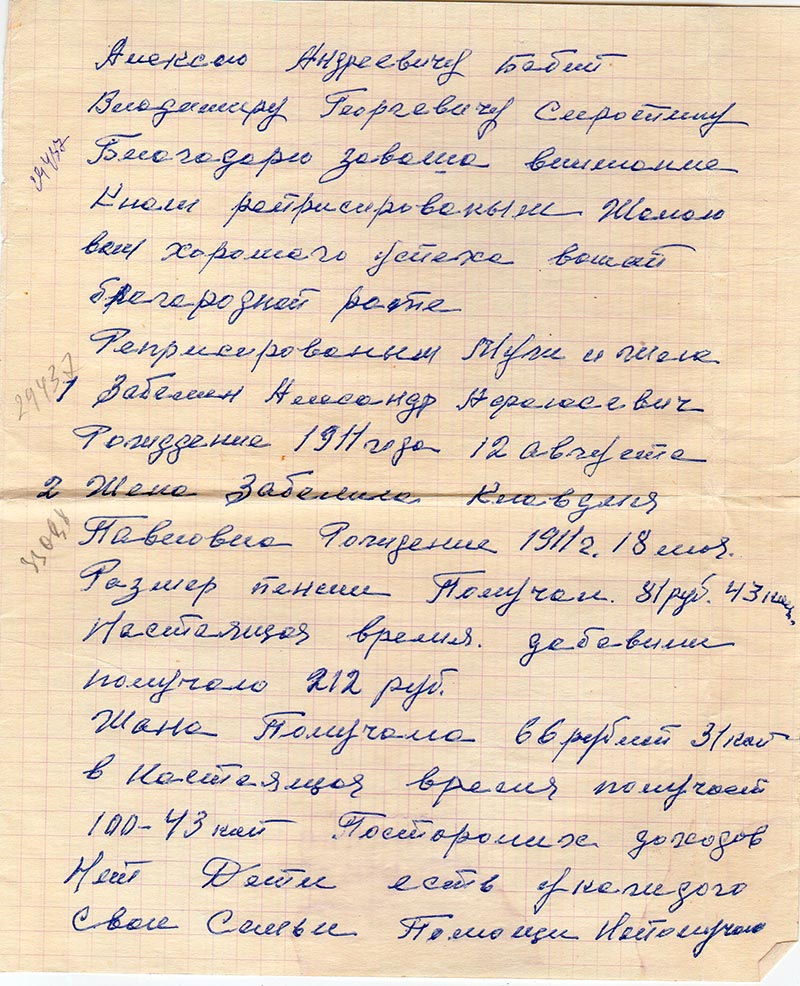 Алексею Андреевичу Бабий
Владимиру Георгевичу Сиротину
29437
Благодарю заваша внимание
Кнам реприсированым Жалаю
вам хорошаго успеха вашай
благародной работе
Реприсированым Муж и жена
29437
1 Забелин Александр Афанасевич
Рождение 1911 года 12 августа
2 Жена Забелина Клавдия
Павловна Рождение 1911 г. 18 мая.
Размер пенсии Получал. 81 руб. 43 коп.
Настаящоя время. добавили
получаю 212 руб.
Жана Получала 66 рублей 31 коп
в настаящоя время получает
100-43 коп Посторонних доходов
Нет Дети есть укаждого
Свои Семьи Помощи Неполучаю